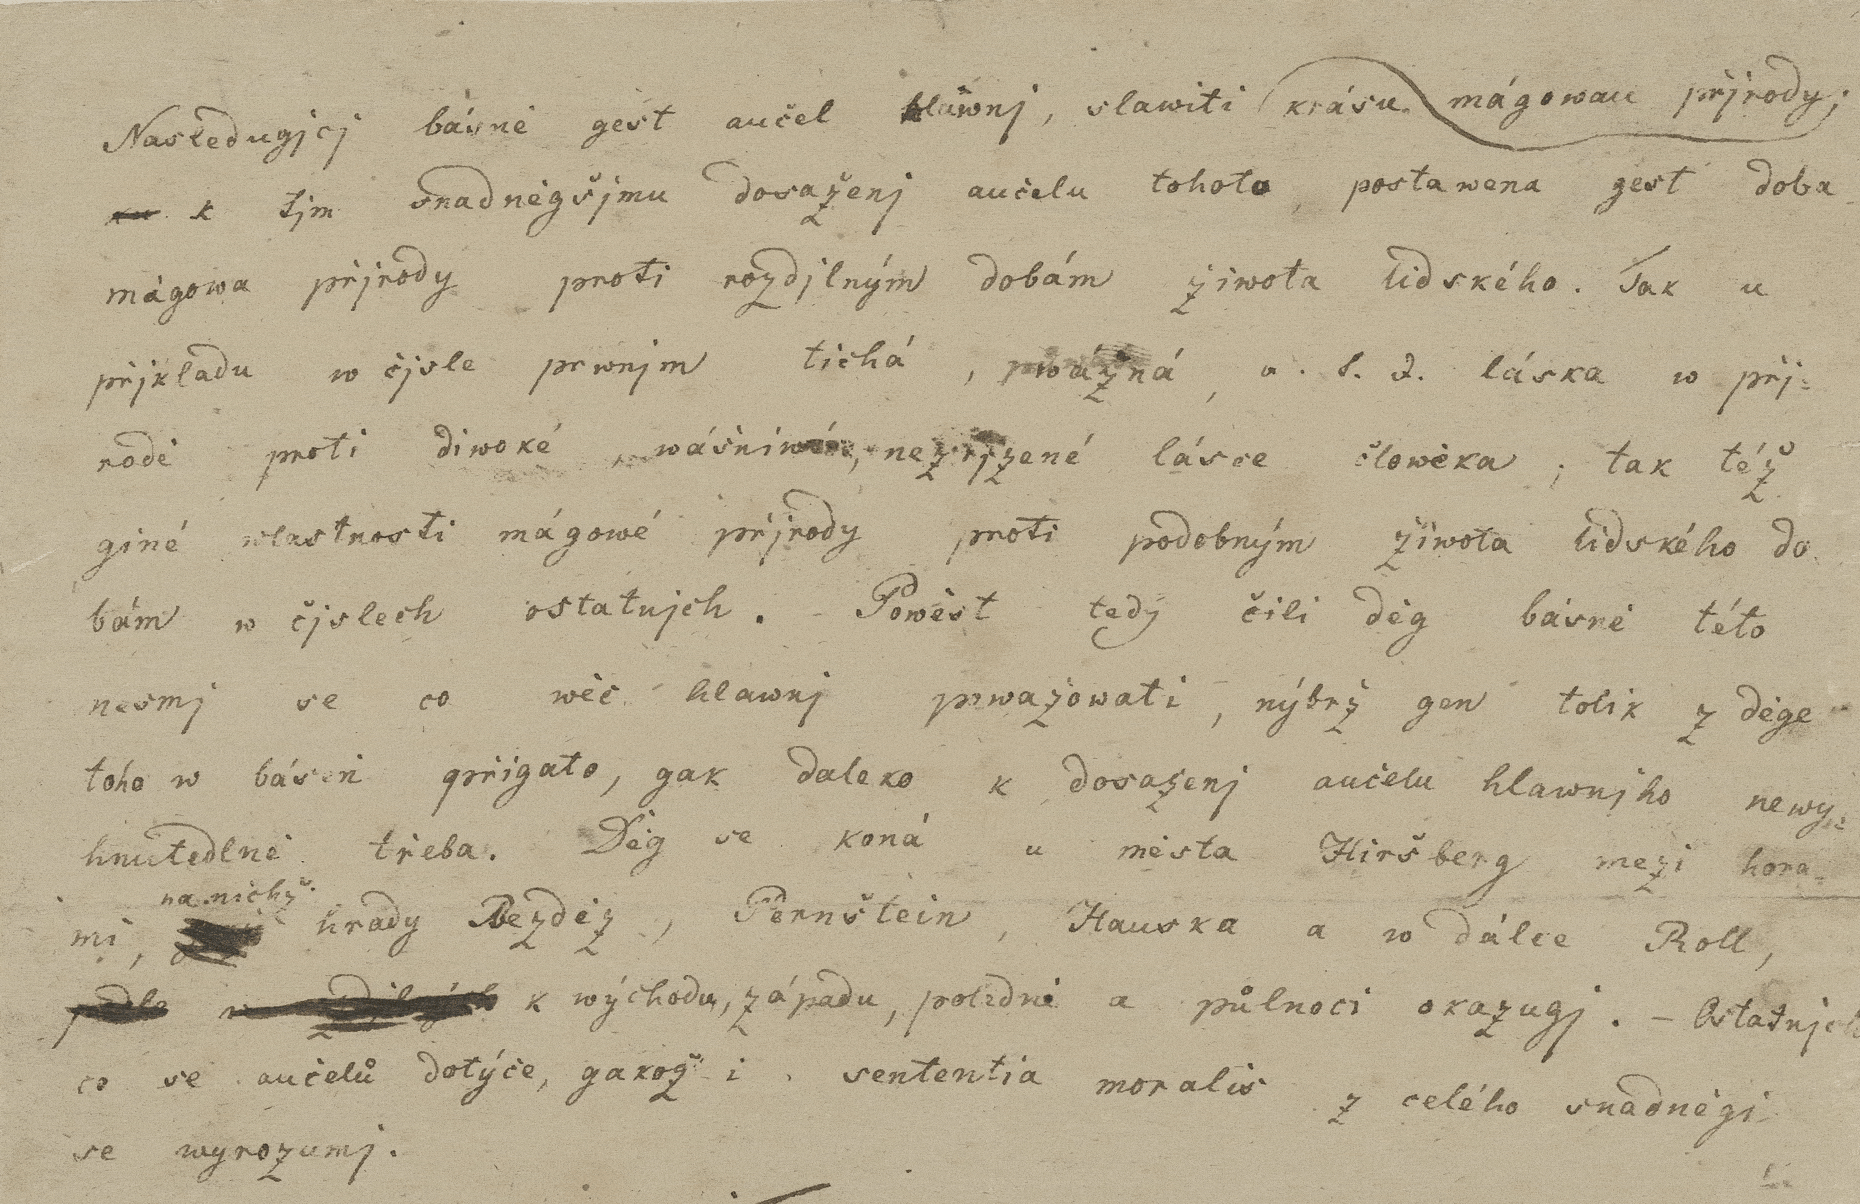 Následugjcj básně gest aučel hlawnj, slawiti krásu mágowau přjrody;
k tjm snadněgšjmu dosaženj aučelu tohoto, postawena gest doba
mágowa přjrody proti rozdjlným dobám žiwota lidského. Tak u
přjkladu w čjsle prwnjm tichá, wážná a. t. d. láska w při-
rodě proti diwoké, wášniwé, nezřjzené lásce člowěka; tak též
giné wlastnosti mágowé přjrody proti podobným žiwota lidského do
bám w čjslech ostatnjch. – Powěst tedy čili děg básně této
nesmj se co wěc hlawnj powažowati, nýbrž gen tolik z děge
toho w báseň přigato, gak daleko k dosaženj aučelu hlawnjho newy-
hnutedlně třeba. Děg se koná u města Hiršberg mezi hora-
mi, na nichž hrady Bezděz, Pernštein, Hauska a w dálce Roll,
k wýchodu, západu, poledni a půlnoci okazugj. – Ostatnjch
co se aučelů dotýče, gakož i sententia moralis z celého snadněgi
se wyrozumj.